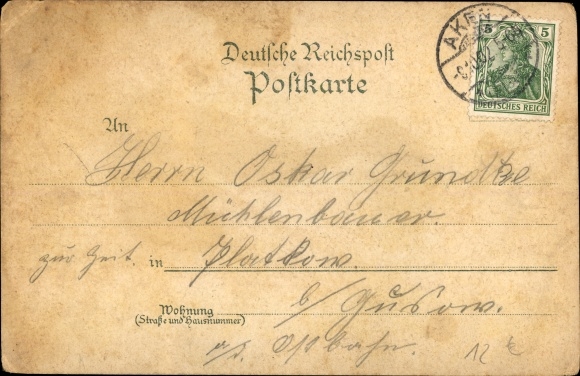 Deutsche Reichspost
Postkarte
AKEN
5 5
DEUTSCHES REICH
An
Herrn Oskar Grundke
Mühlenbauer.
zur Zeit. in Platkow.
b/ Gusow.
Wohnung
(Straße und Hausnummer)
a/d. Ostbahn.
12